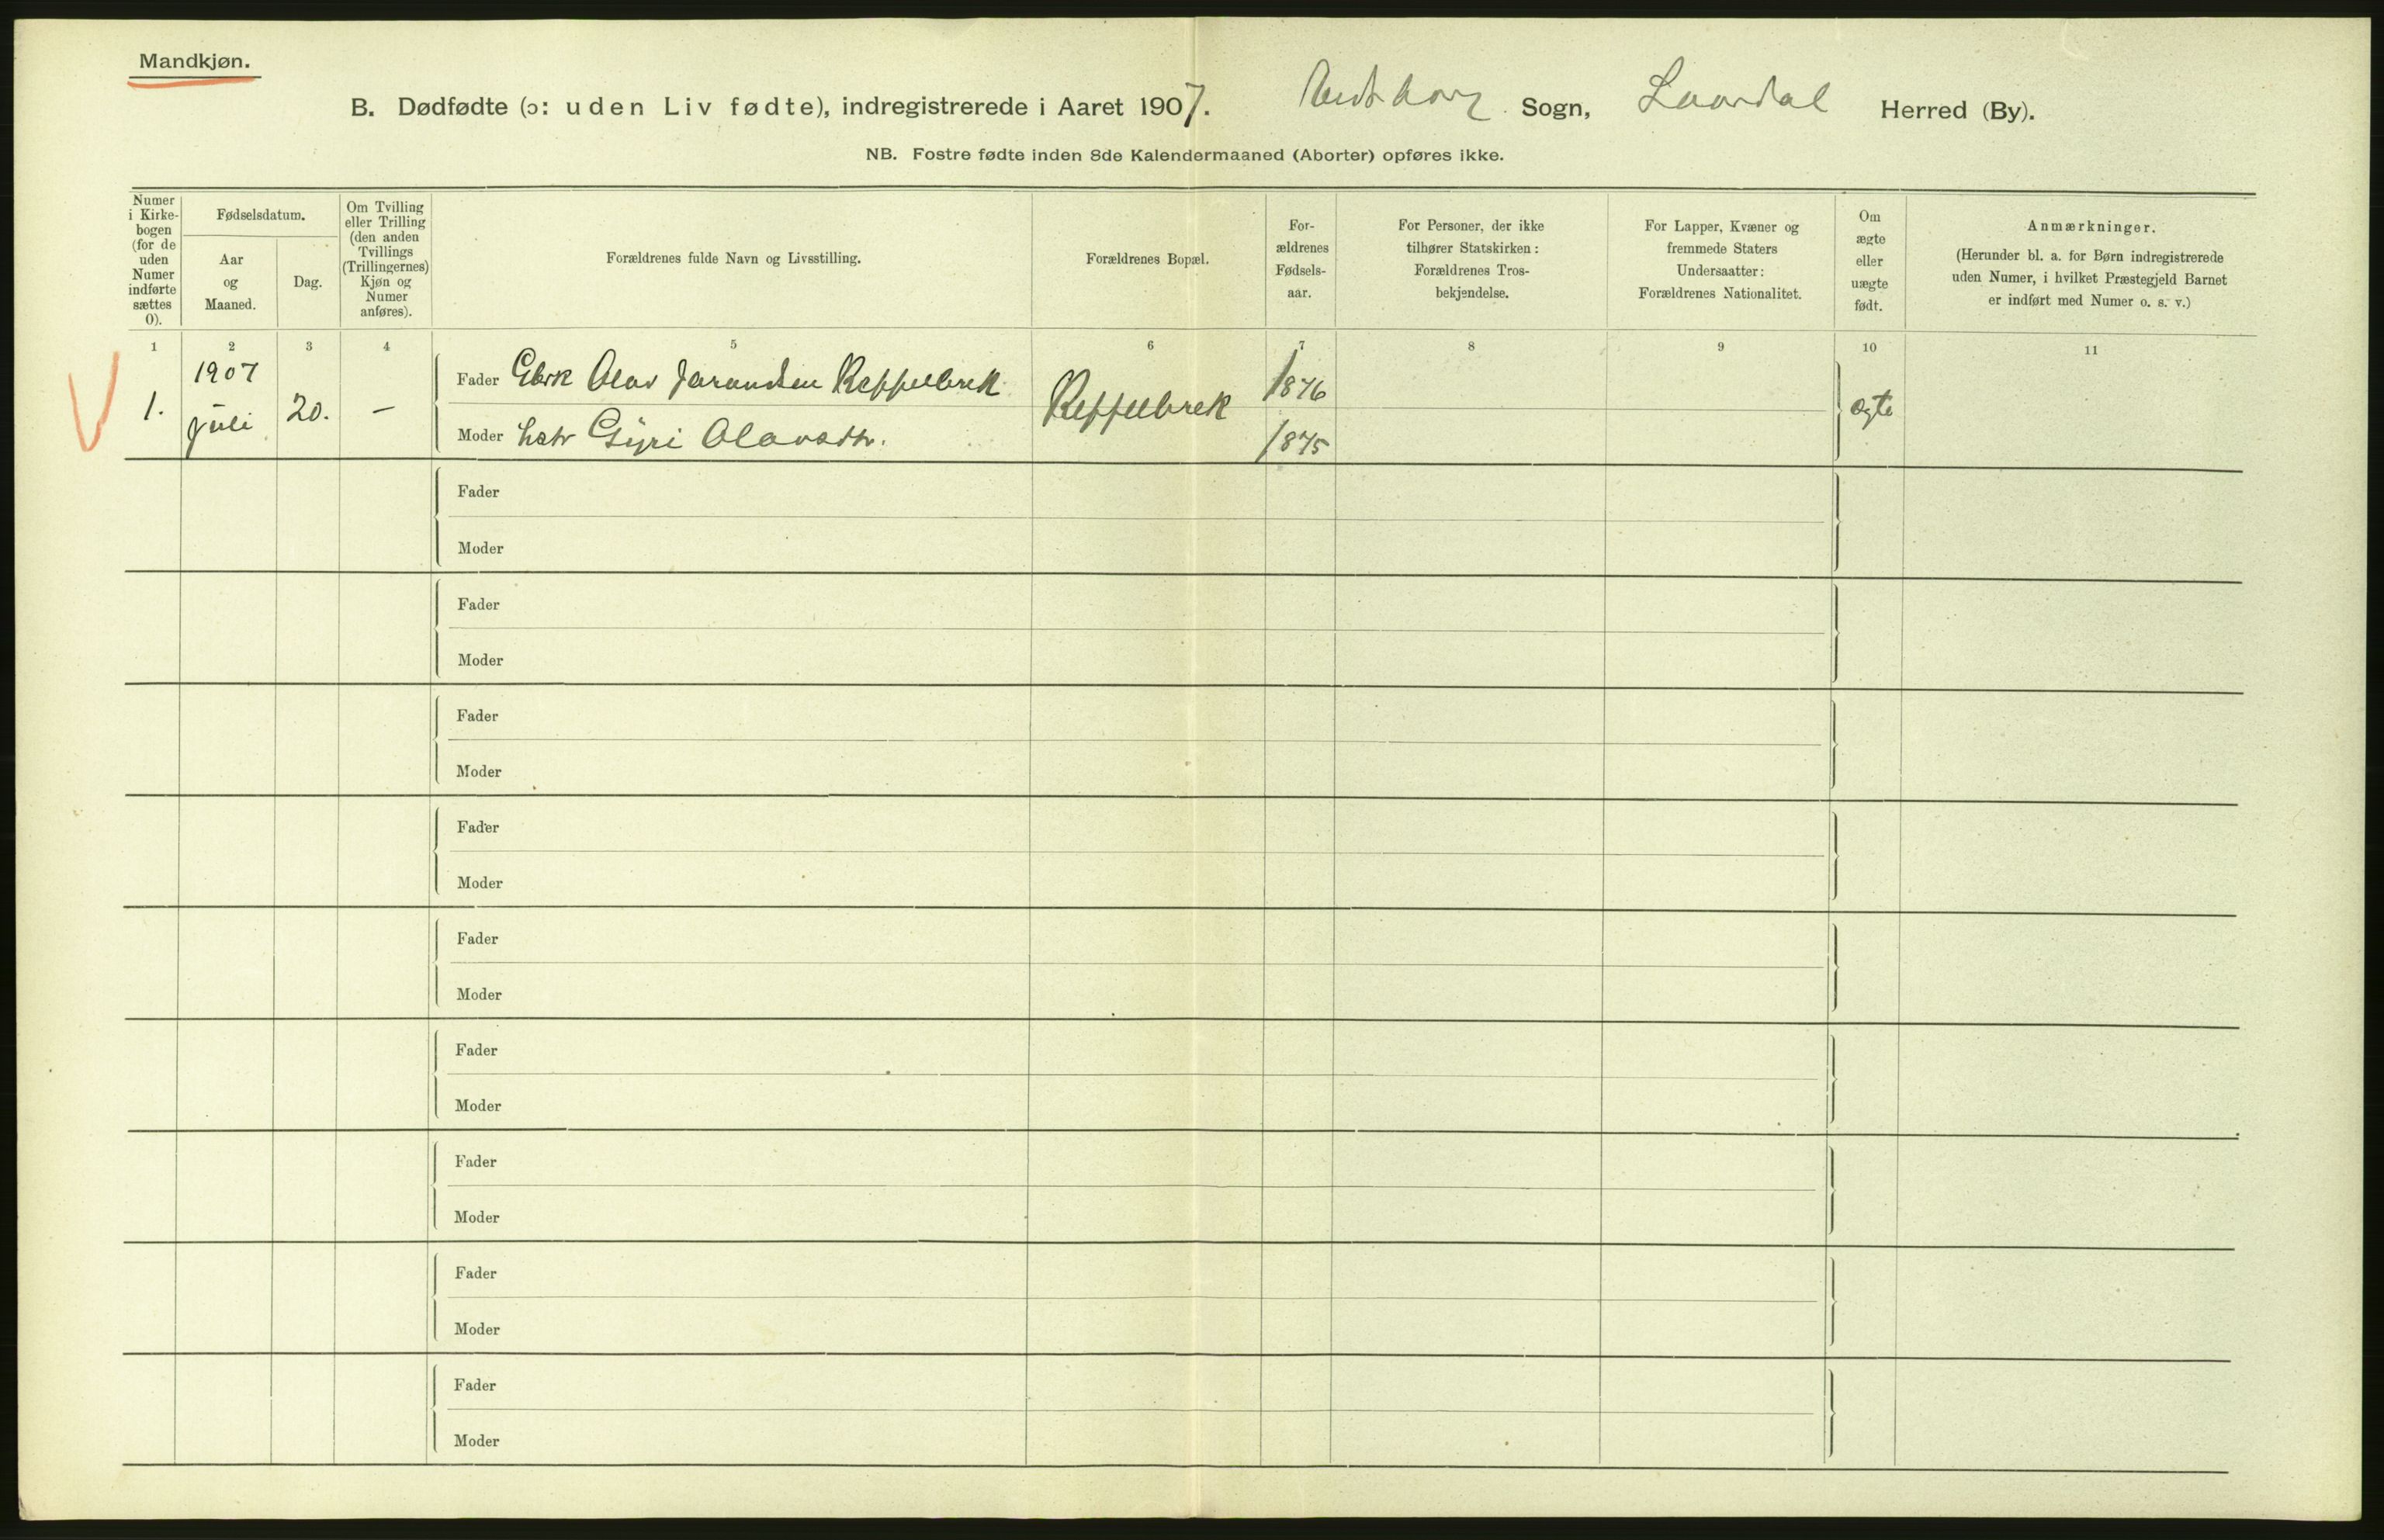 Mandkjøn.
B. Dødfødte (ɔ: uden Liv fødte), indregistrerede i Aaret 1907. Sogn, Laardal Herred (By).
NB. Fostre fødte inden 8de Kalendermaaned (Aborter) opføres ikke.
Numer i Kirke-bogen (for de uden Numer indførte sættes 0).
Fødselsdatum.
Aar og Maaned.
Dag.
Om Tvilling eller Trilling (den anden Tvillings (Trillingernes) Kjøn og Numer anføres).
Forældrenes fulde Navn og Livsstilling.
Forældrenes Bopæl.
For-ældrenes Fødsels-aar.
For Personer, der ikke tilhører Statskirken: Forældrenes Tros-bekjendelse.
For Lapper, Kvæner og fremmede Staters Undersaatter: Forældrenes Nationalitet.
Om ægte eller uægte født.
Anmærkninger.
(Herunder bl. a. for Børn indregistrerede uden Numer, i hvilket Præstegjeld Barnet er indført med Numer o. s. v.)
1 2 3 4 5 6 7 8 9 10 11
1. 1907 Juli 20. —
Fader Gbrk Olav Jarandsen 1876
Moder Gyri Olavsdtr. 1875
ægte
Fader
Moder
Fader
Moder
Fader
Moder
Fader
Moder
Fader
Moder
Fader
Moder
Fader
Moder
Fader
Moder
Fader
Moder